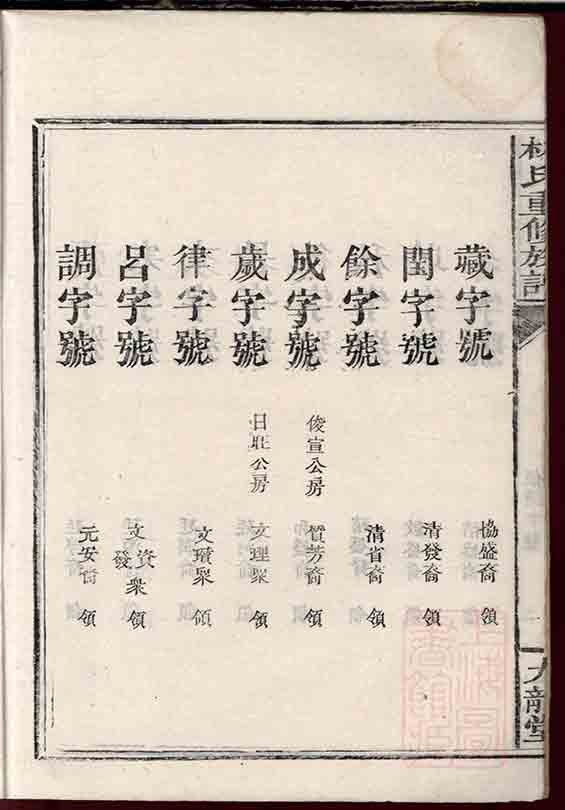 林氏重修族譜
九龍堂
藏字號 協盛裔 領
閏字號 清發裔 領
餘字號 清省裔 領
成字號 俊宣公房 質芳裔 領
歲字號 日旺公房 文理衆 領
律字號 文瓚衆 領
呂字號 文資發衆 領
調字號 元安裔 領
上海圖書館藏